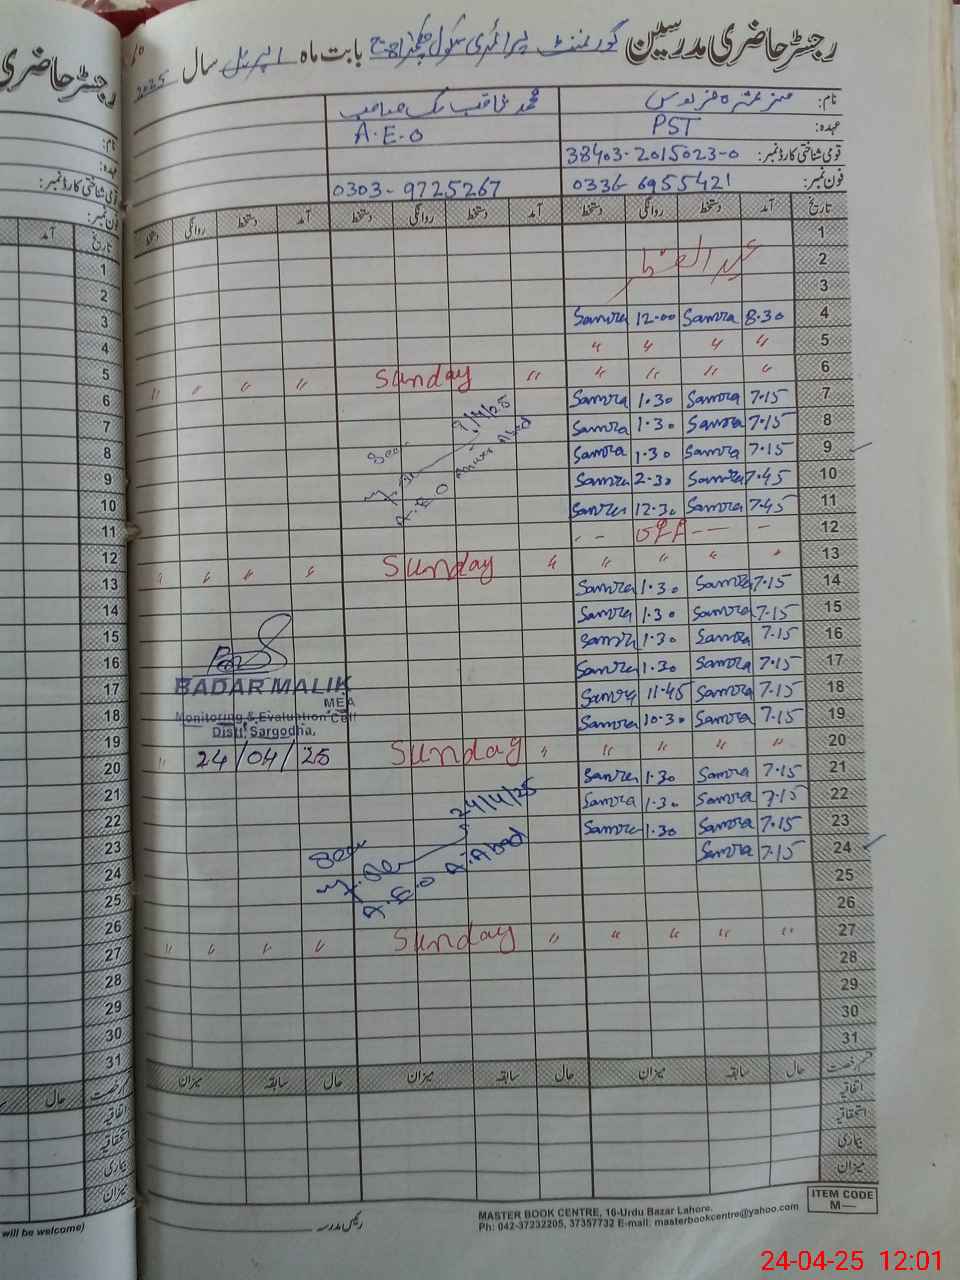 رجسٹر حاضری مدرسین گورنمنٹ پرائمری سکول بابت ماہ اپریل سال 2025
نام:
عہدہ: PST A.E.O
قومی شناختی کارڈ نمبر: 38403-2015023-0
فون نمبر: 0336-6955421 0303-9725267
تاریخ آمد دستخط روانگی دستخط آمد دستخط روانگی دستخط آمد دستخط روانگی دستخط
1
2 عید الفطر
3
4 8.30 Samra 12.00 Samra
5 " " " "
6 " " " " " Sunday " " " "
7 7.15 Samra 1.30 Samra
8 7.15 Samra 1.30 Samra
9 7.15 Samra 1.30 Samra
10 7.45 Samra 2.30 Samra
11 7.45 Samra 12.30 Samra
12
13 " " " " " Sunday " " " "
14 7.15 Samra 1.30 Samra
15 7.15 Samra 1.30 Samra
16 7.15 Samra 1.30 Samra
17 7.15 Samra 1.30 Samra
18 7.15 Samra 11.45 Samra
19 7.15 Samra 10.30 Samra
20 " " " " " Sunday "
21 7.15 Samra 1.30 Samra
22 7.15 Samra 1.30 Samra
23 7.15 Samra 1.30 Samra
24 7.15 Samra
25
26
27 " " " " " Sunday " " " "
28
29
30
31
9/4/25
A.E.O
BADAR MALIK
MEA
Monitoring & Evaluation Cell
Distt. Sargodha.
24/04/25
24/4/25
Seen
A.E.O
رخصت حال سابقہ میزان حال سابقہ میزان حال سابقہ میزان
اتفاقیہ
استحقاقیہ
بیماری
میزان
رئیس مدرسہ
MASTER BOOK CENTRE, 16-Urdu Bazar Lahore.
Ph: 042-37232205, 37357732 E-mail: masterbookcentre@yahoo.com
ITEM CODE
M—
رجسٹر حاضری
نام:
عہدہ:
قومی شناختی کارڈ نمبر:
فون نمبر:
تاریخ آمد
1
2
3
4
5
6
7
8
9
10
11
12
13
14
15
16
17
18
19
20
21
22
23
24
25
26
27
28
29
30
31
رخصت حال
اتفاقیہ
استحقاقیہ
بیماری
میزان
will be welcome)
24-04-25 12:01